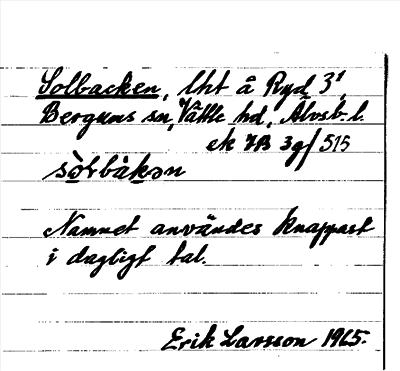 Solbacken, lht å Ryd 3¹,
Bergums sn, Vättle hd, Älvsb. l.
ek 7B 3g/515
sòɫbàkən
Namnet användes knappast
i dagligt tal.
Erik Larsson 1965.